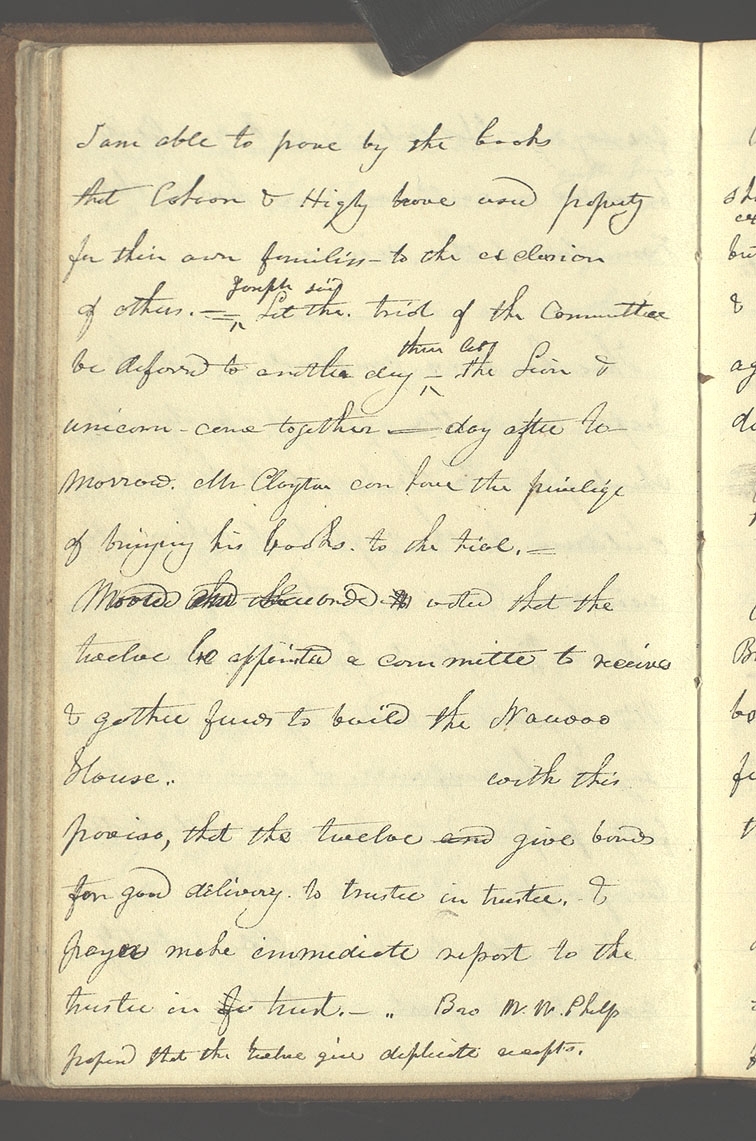 I am able to prove by the books
that Cahoon & Higby have used property
for thier own familiss – to the exclusion
of others. – Joseph said Let the. trial of the Committee
be defered to another day – then let the Lion &
unicorn – come together — day after to
morrow. Mr Clayton can have the privilige
of bringing his books. to the trial. –
Moved and Seconded voted that the
twelve be appointed a committe to receive
& gather funds to build the Nauvoo
House. with this
proviso, that the twelve and give bonds
for good delivery. to trustee in trustee. &
payer make immediate report to the
trustee in for trust. – „ Bro W. W. Phelp
proposd that the twelve give duplicate receipts.